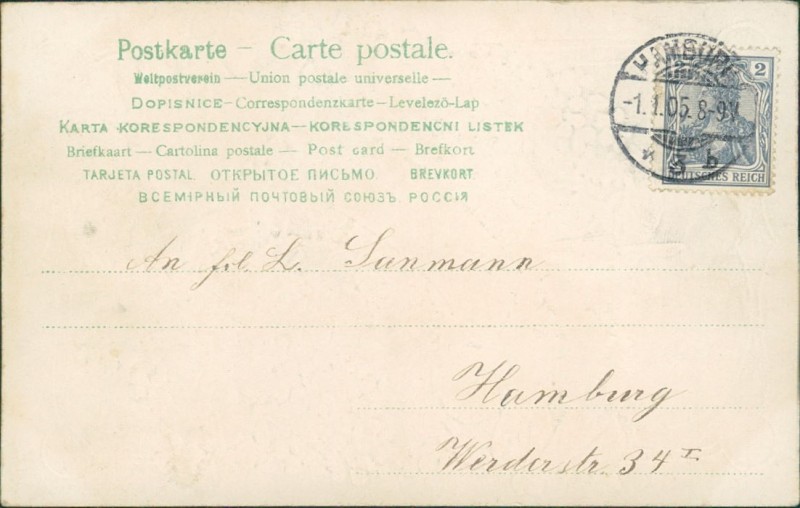 Postkarte – Carte postale.
Weltpostverein — Union postale universelle —
DOPISNICE – Correspondenzkarte – Levelező-Lap
KARTA KORESPONDENCYJNA – KORESPONDENČNI LISTEK
Briefkaart — Cartolina postale — Post card — Brefkort
TARJETA POSTAL. ОТКРЫТОЕ ПИСЬМО. BREVKORT
ВСЕМІРНЫЙ ПОЧТОВЫЙ СОЮЗЪ. РОССІЯ
HAMBURG
-1.1.05. 8-9V.
* 5 b
2
DEUTSCHES REICH
An frl. L. Sunmann
Hamburg
Werderstr. 34 I